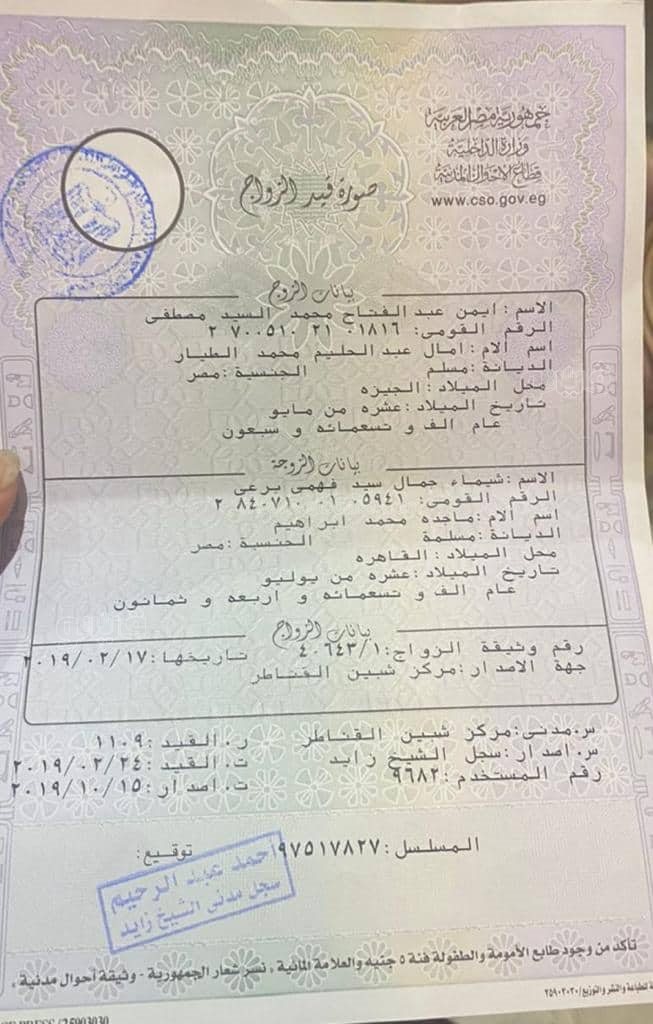 جمهورية مصر العربية
وزارة الداخلية
قطاع الأحوال المدنية
www.cso.gov.eg
صورة قيد الزواج
بيانات الزوج
الاسم : ايمن عبد الفتاح محمد السيد مصطفى
الرقم القومى: ٢ ٧٠٠٥١٠ ٢١ ٠١٨١٦
اسم الام : امال عبد الحليم محمد الطيار
الديانة : مسلم الجنسية : مصر
محل الميلاد : الجيزه
تاريخ الميلاد : عشره من مايو
عام الف و تسعمائه و سبعون
بيانات الزوجة
الاسم : شيماء جمال سيد فهمى برعى
الرقم القومى: ٢ ٨٤٠٧١٠ ٠١ ٠٥٩٤١
اسم الام : ماجده محمد ابراهيم
الديانة : مسلمة الجنسية : مصر
محل الميلاد : القاهره
تاريخ الميلاد : عشره من يوليو
عام الف و تسعمائه و اربعه و ثمانون
بيانات الزواج
رقم وثيقة الزواج : ٤٠٦٤٣/١ تاريخها : ٢٠١٩/٠٢/١٧
جهة الاصدار : مركز شبين القناطر
س.مدنى : مركز شبين القناطر ر.القيد : ١١٠٩
س.اصدار : سجل الشيخ زايد ت.القيد : ٢٠١٩/٠٢/٢٤
رقم المستخدم : ٩٦٨٢ ت.اصدار : ٢٠١٩/١٠/١٥
المسلسل : ٩٧٥١٧٨٢٧ توقيع :
احمد عبد الرحيم
سجل مدنى الشيخ زايد
تأكد من وجود طابع الأمومة والطفولة فئة ٥ جنيه والعلامة المائية ، نسر شعار الجمهورية - وثيقة أحوال مدنية ،
للطباعة والنشر والتوزيع/٢٥٩٠٣٠٣٠
PRESS /25903030